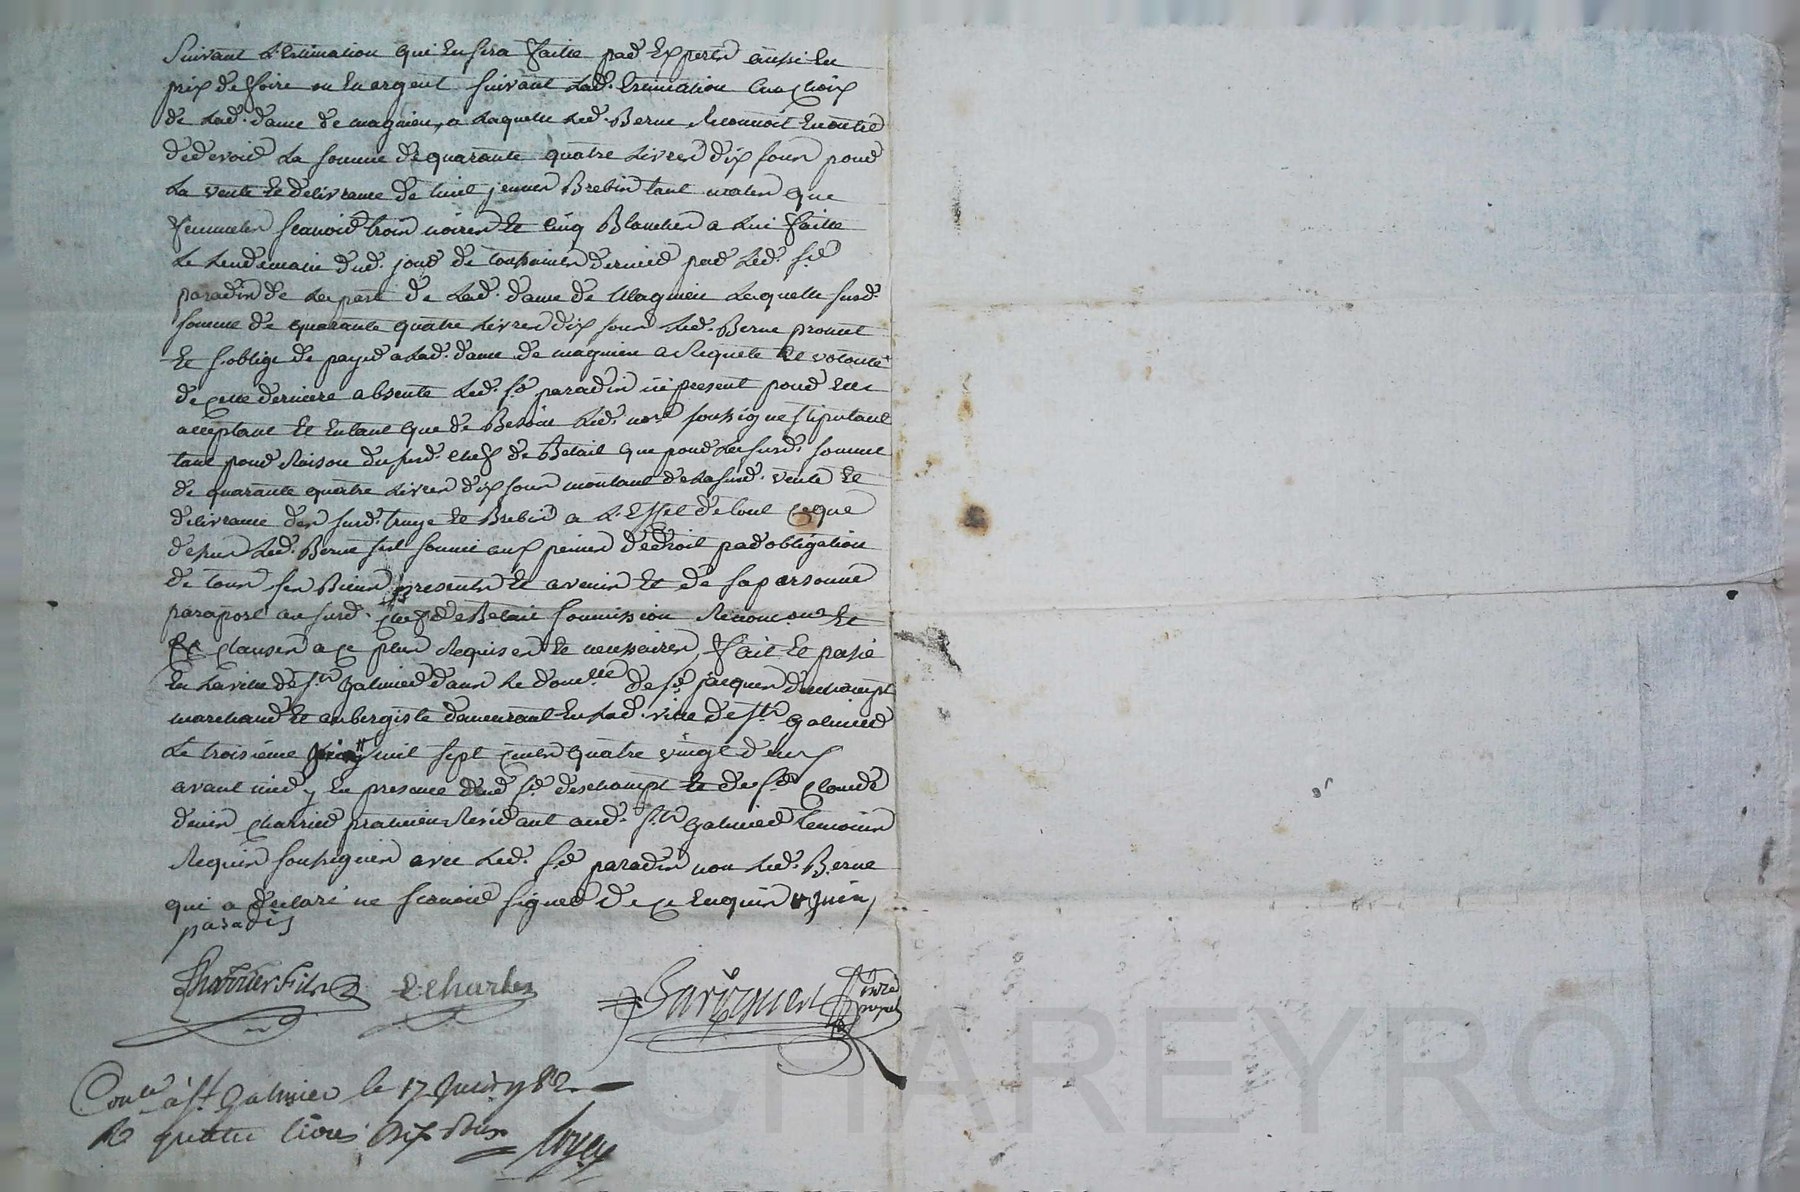 Suivant L'Estimation qui En sera faitte par Experts aussi En
prix de foire ou En argent suivant Lad. Estimation au choix
de Lad. dame de magnieu, a Laquelle Led. Berne Reconnoit En outre
de devoir La somme de quarante quatre Livres dix sous pour
La vente Et delivrance de huit jeunes Brebis tant males que
femmelles scavoir trois noires Et cinq Blanches a Lui faitte
Le Lendemain dud. jour de toussaints dernier par Led. Sr.
paradis de La part de Lad. dame de Magnieu Laquelle susd.
somme de quarante quatre Livres dix sous Led. Berne promet
Et s'oblige de payer a Lad. dame de magnieu a Requete Et volonté
de cette derniere absente Led. Sr. paradis ici present pour Elle
acceptant Et En tant que de Besoin Led. nore. soussigne stipulant
tant pour Raison du susd. cheptel de Betail que pour La susd. somme
de quarante quatre Livres dix sous montant de La susd. vente Et
delivrance des susd. truye Et Brebis a L'Effet de tout ce que
dessus Led. Berne s'est soumis aux peines de droit par obligation
de tous ses Biens presents Et avenir Et de sa personne
par raport au susd. de Betail soumission Renonc.ons Et
clauses a ce plus Requises Et necessaires, fait Et passé
En La ville de St. Galmier dans Le domlle. de Sr. jacques deschampt
marchand Et aubergiste demeurant En Lad. ville de St. Galmier
Le troisieme mil sept cents quatre vingt deux
avant midy En presence dud. Sr. deschampt Et de Sr. Claude
denis Charrier praticien Residant aud. St. Galmier temoins
Requis soussignés avec Led. Sr. paradis non Led. Berne
qui a declaré ne scavoir signer de ce Enquis juin
paradis
Charrier fils
Contle. à St. Galmier le 17 Juin 1782
R quatre livres dix sous